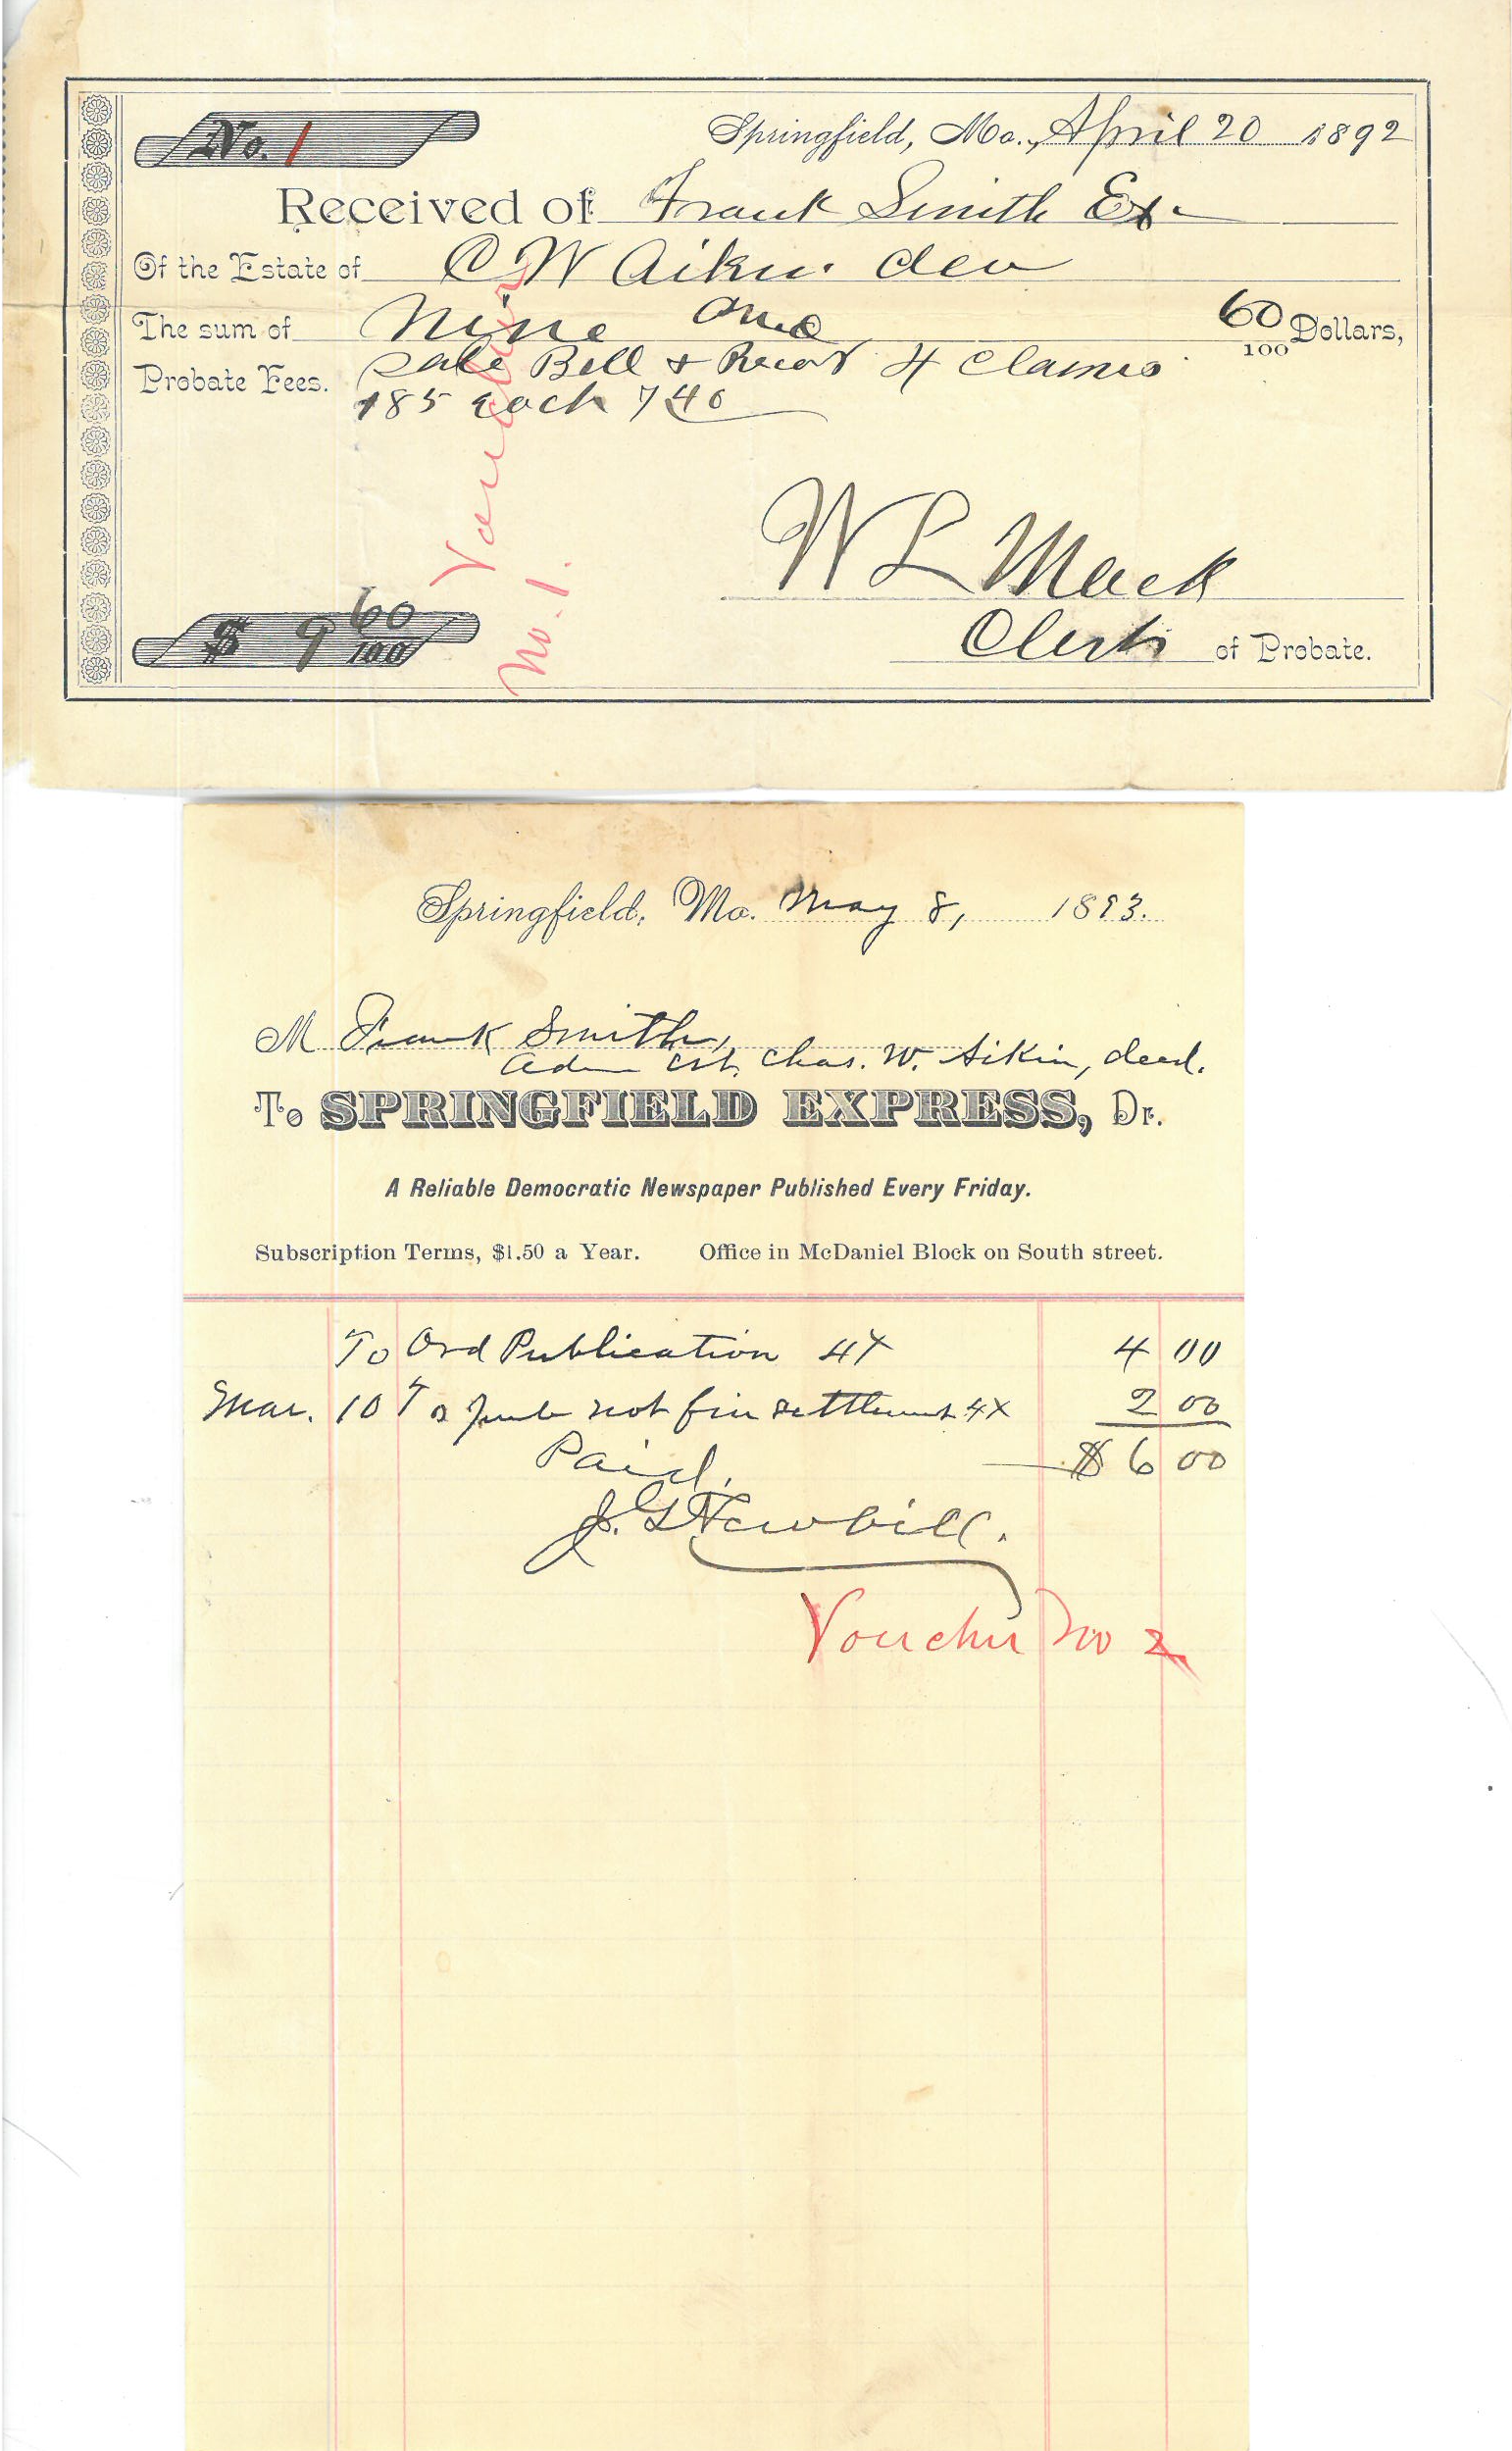 No. 1
Springfield, Mo., April 20 1892
Received of Frank Smith Ex.
Of the Estate of C W Aikin.
The sum of Nine and 60/100 Dollars,
Probate Fees. Sale Bill & 4 Claims
185 each 740
W L Mack
$ 9 60/100
Clerk of Probate.
Voucher
No. 1.
Springfield, Mo. May 8, 1893.
M Frank Smith,
Adm est. Chas. W. Aikin, decd.
To SPRINGFIELD EXPRESS, Dr.
A Reliable Democratic Newspaper Published Every Friday.
Subscription Terms, $1.50 a Year. Office in McDaniel Block on South street.
To Ord Publication 4X 4 00
Mar. 10 To Pub not fin settlement 4X 2 00
Paid. $ 6 00
J. G Newbill.
Voucher No 2